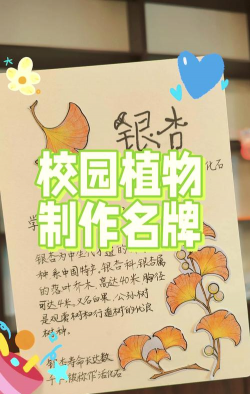 银杏
活化石
校园植物
制作名牌
学
银杏为中生代孑遗的
种系中国特产,银杏科,银杏属
的落叶乔木,高达40米,胸径
可达4米。又名白果,公孙树
是观赏树和行道树的优良
树种。
银杏寿命长达数
千年,被称作活化石